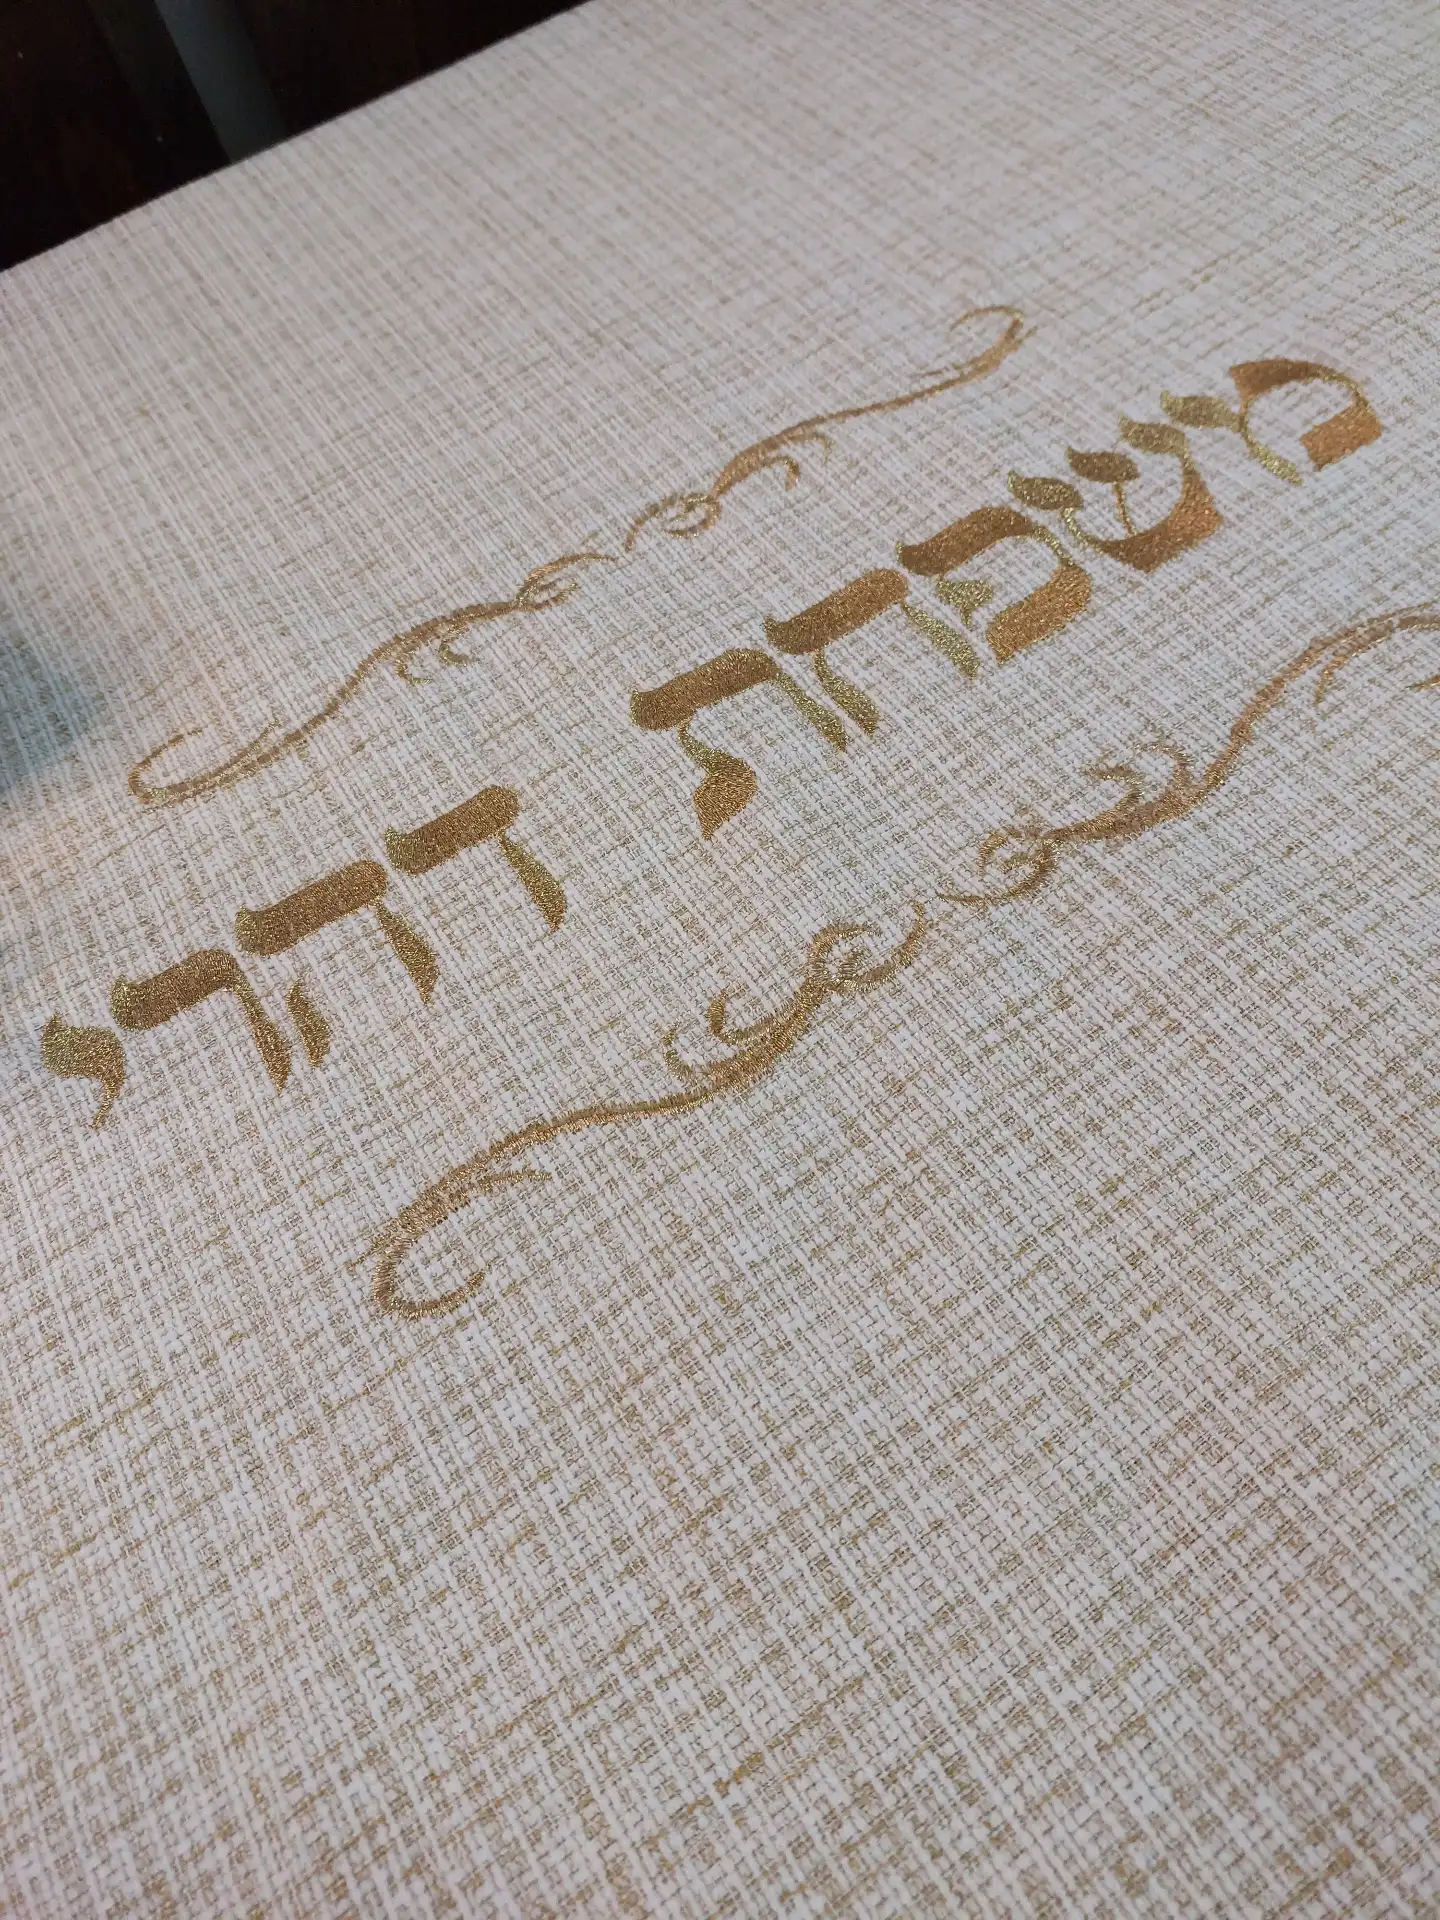 משפחת דהרי